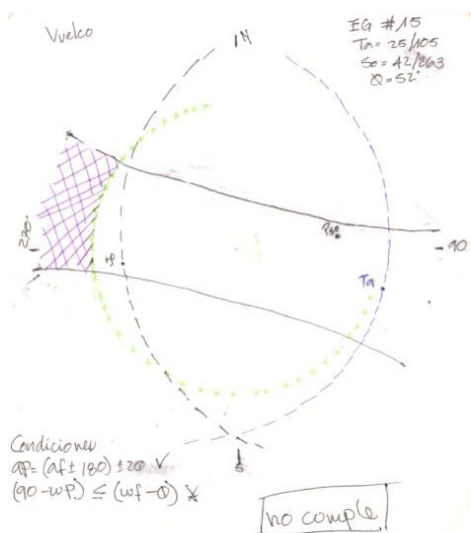 Vuelco
N
EG #15
Ta = 25/105
So = 42/263
Q = 52°
270
So
Ta
90
S
Condiciones
αp = (αf ± 180) ± 20 ✓
(90 - ωp) ≤ (ωf - Φ) X
no comple